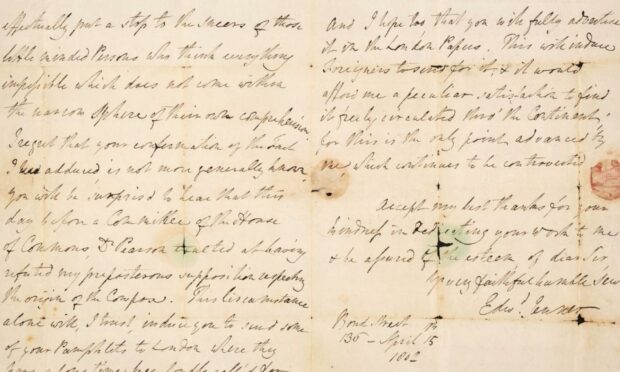 effectually put a stop to the Sneers of those
little minded Persons who think everything
impossible which does not come within
the narrow Sphere of their own comprehension.
I regret that your confirmation of the Fact
I had adduced, is not more generally known
you will be surprised to hear that this
day before a Committee of the House
of Commons, Dr Pearson exulted at having
refuted my preposterous supposition respecting
the origin of the Cowpox. This circumstance
alone will, I trust, induce you to send some
of your Pamphlets to London where they
have a long time been loudly call'd for
And I hope too that you will fully advertise
it in the London Papers. This will induce
Foreigners to send for it, & it would
afford me a peculiar satisfaction to find
it freely circulated thro' the Continent,
for this is the only point advanced by
me, which continues to be controverted.
Accept my best thanks for your
kindness in Dedicating your work to me
& be assured of the esteem of dear Sir
Your very faithful humble Serv
Edwd. Jenner
Bond Street
136 - April 15
1802